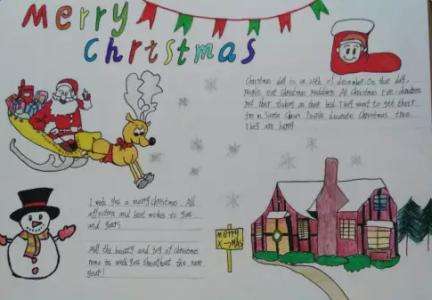 Merry
Christmas
Christmas day is on 25th of december. On that day,
people eat Christmas
put their stockings on their bed. They want to get
from Santa Claus. People decorate Christmas tree.
They are happy.
I wish you a merry christmas. All
affection and best wishes to you
and yours.
All the beauty and joy of christmas
time be with you throughout the new
year!
merry
X-Mas